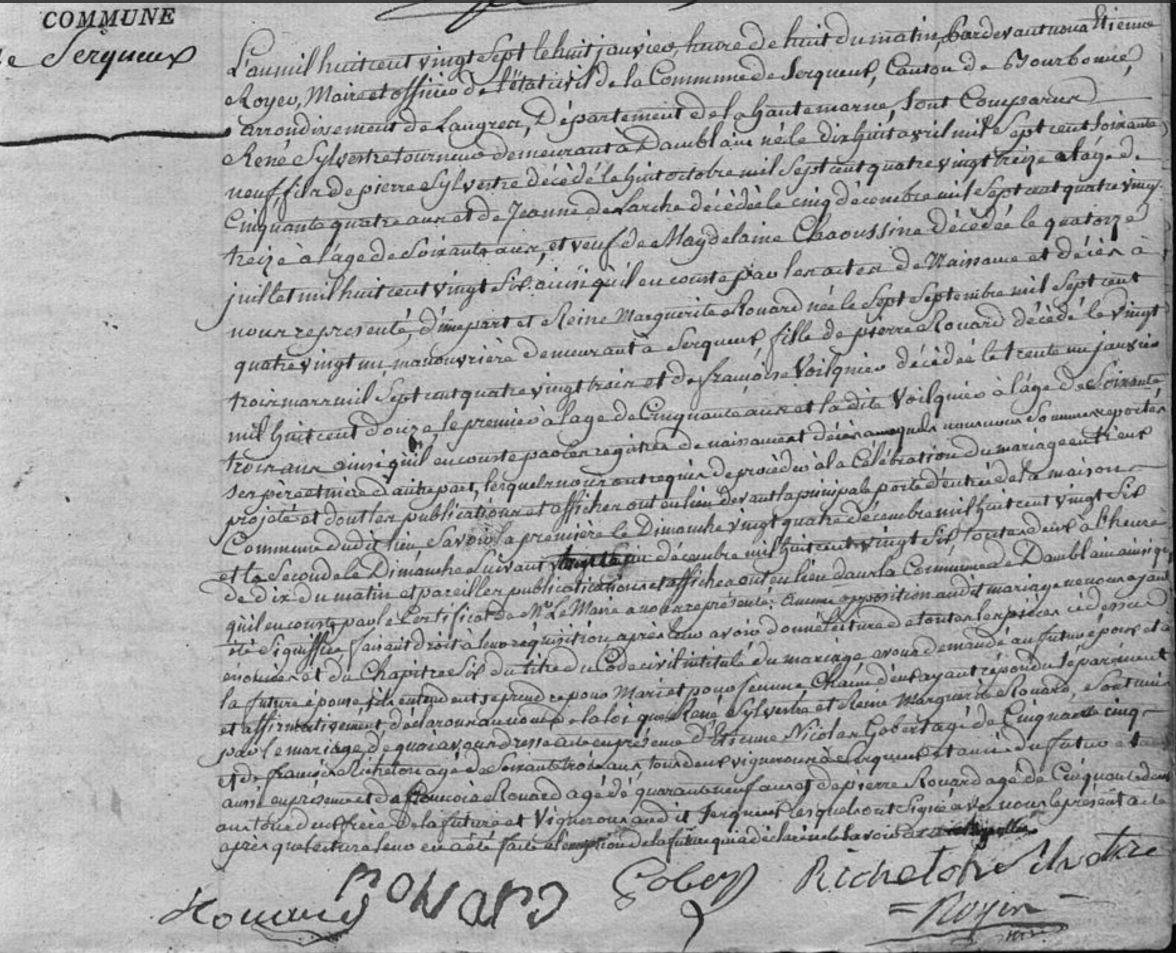 COMMUNE
de Serqueux
L'an mil huit cent vingt Sept le huit janvier, heure de huit du matin, Pardevant nous Etienne
Royer, Maire et officier de l'état civil de la Commune de Serqueux, Canton de Bourbonne,
arrondissement de Langres, Département de la haute marne, Sont Comparus
René Sylvestre tourneur demeurant à Damblain né le dix huit avril mil Sept cent Soixante
neuf, fils de pierre Sylvestre décédé le huit octobre mil Sept cent quatre vingt treize a l'âge de
Cinquante quatre ans et de Jeanne de Larche décédée le cinq décembre mil Sept cent quatre vingt
treize à l'age de Soixante ans, et veuf de Magdelaine Chaoussine décédée le quatorze
juillet mil huit cent vingt Six ainsi qu'il en conste par les actes de Naissance et décès à
nous représenté, d'une part et Reine Marguerite Rouard née le Sept Septembre mil Sept cent
quatre vingt un, manouvrière demeurant à Serqueux, fille de pierre Rouard décédé le vingt
trois mars mil Sept cent quatre vingt trois et de françoise Voilquier décédée le trente un janvier
mil huit cent douze le premier à l'age de Cinquante ans et la dite Voilquier à l'âge de Soixante
trois ans ainsi qu'il en conste par les registres de naissance et décès auxquels nous nous Sommes reportés
ses père et mère d'autre part, lesquels nous ont requis de procéder à la Célébration du mariage entr'eux
projeté et dont les publications et affiches ont eu lieu devant la principale porte d'entrée de la maison
Commune dudit lieu Savoir la première le Dimanche vingt quatre décembre mil huit cent vingt Six
et la Seconde le Dimanche Suivant décembre mil huit cent vingt Six toutes deux à l'heure
de dix du matin et pareilles publications et affiches ont eu lieu dans la Commune de Damblain ainsi
qu'il en conste par le Certificat de Mr Le Maire a nous représenté: Aucune opposition audit mariage ne nous ayant
été Signifiée, faisant droit à leur réquisition, après leur avoir donné lecture de toutes les pièces ci dessus
énoncées et du Chapitre Six du titre du Code civil intitulé du mariage, avons demandé au futur époux et à
la future épouse s'ils entendent se prendre pour Mari et pour femme Chacun d'eux ayant répondu Séparément
et affirmativement, déclarons au nom de la loi que René Sylvestre et Reine Marguerite Rouard, Sont unis
par le mariage, de quoi avons dressé acte en présence d'Etienne Nicolas Gobert agé de Cinquante cinq
et de françois Richeton agé de Soixante trois ans tous deux vignerons à Serqueux et amis du futur
aussi en présence de françois Rouard agé de quarante neuf ans et de pierre Rouard agé de Cinquante deux
ans tous deux frère de la future et Vignerons audit Serqueux lesquels ont Signé avec nous le présent acte
après que lecture leur en a été faite à l'exception de la future qui a déclaré ne le Savoir
Rouard
rouard
Gobert
Richeton
Silvestre
Royer